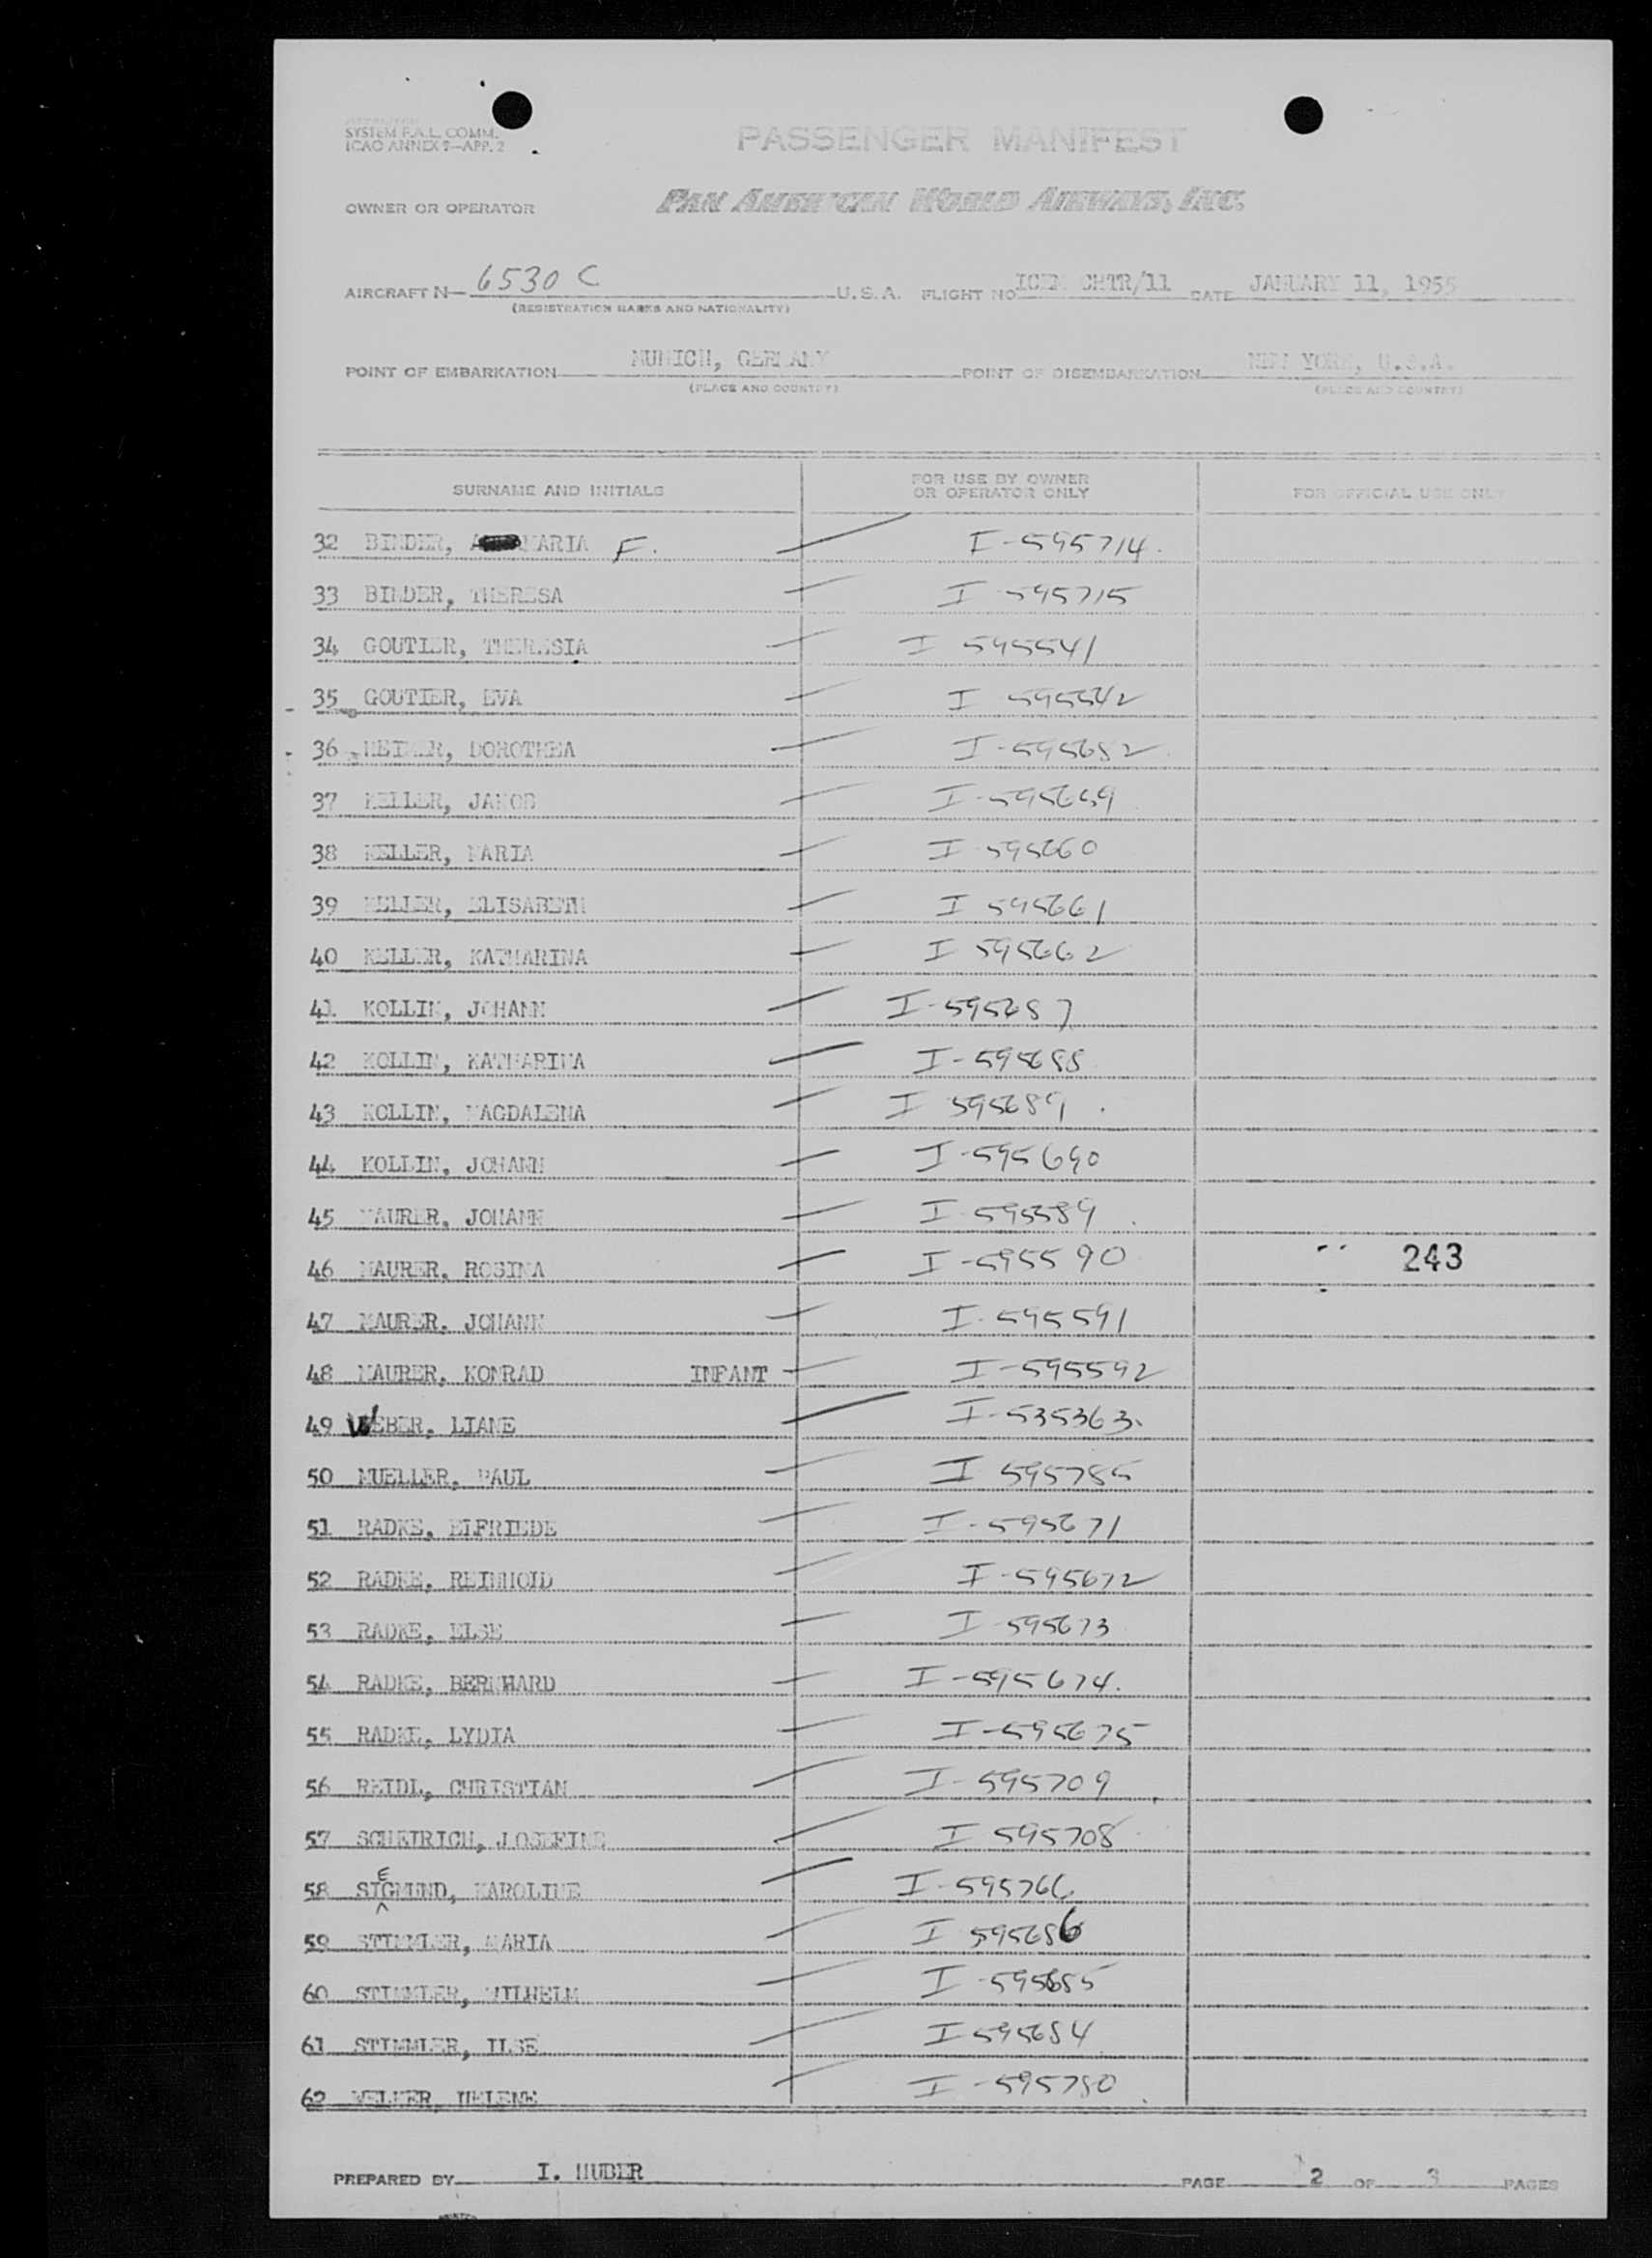 SYSTEM F.A.L. COMM.
ICAO ANNEX 9—APP. 2
PASSENGER MANIFEST
OWNER OR OPERATOR PAN AMERICAN WORLD AIRWAYS, INC.
AIRCRAFT N— 6530 C U.S.A. FLIGHT NO ICEM CHTR/11 DATE JANUARY 11, 1955
(REGISTRATION MARKS AND NATIONALITY)
POINT OF EMBARKATION MUNICH, GERMANY POINT OF DISEMBARKATION NEW YORK, U.S.A.
(PLACE AND COUNTRY) (PLACE AND COUNTRY)
SURNAME AND INITIALS FOR USE BY OWNER OR OPERATOR ONLY FOR OFFICIAL USE ONLY
32 BINDER, MARIA F. I-595714.
33 BINDER, THERESA I 595715
34 GOUTIER, THERESIA I 595541
35 GOUTIER, EVA I 595542
36 DOROTHEA I-595652
37 KELLER, JAKOB I-595659
38 KELLER, MARIA I 595660
39 KELLER, ELISABETH I 595661
40 KELLER, KATHARINA I 595662
41 KOLLIN, JOHANN I-595687
42 KOLLIN, KATHARINA I-595688
43 KOLLIN, MAGDALENA I 595689
44 KOLLIN, JOHANN I-595690
45 MAURER, JOHANN I-595589
46 MAURER, ROSINA I-595590 243
47 MAURER, JOHANN I-595591
48 MAURER, KONRAD INFANT I-595592
49 WEBER, LIANE I-535363.
50 MUELLER, PAUL I 595785
51 RADKE, ELFRIEDE I-595671
52 RADKE, REINHOLD I-595672
53 RADKE, ELSE I-595673
54 RADKE, BERNHARD I-595674.
55 RADKE, LYDIA I-595675
56 REIDL, CHRISTIAN I-595709
57 SCHEIRICH, JOSEFINE I 595708
58 SIEGMUND, KAROLINE I-595766
59 STIMMLER, MARIA I 595686
60 STIMMLER, WILHELM I-595685
61 STIMMLER, ILSE I-595684
62 HELENE I-595780
PREPARED BY I. HUBER PAGE 2 OF 3 PAGES